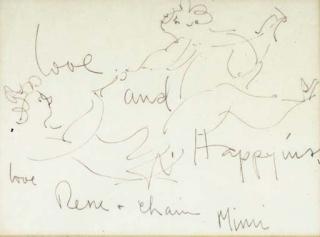 love
and
Happyins
love
Rene + chaim
Mimi